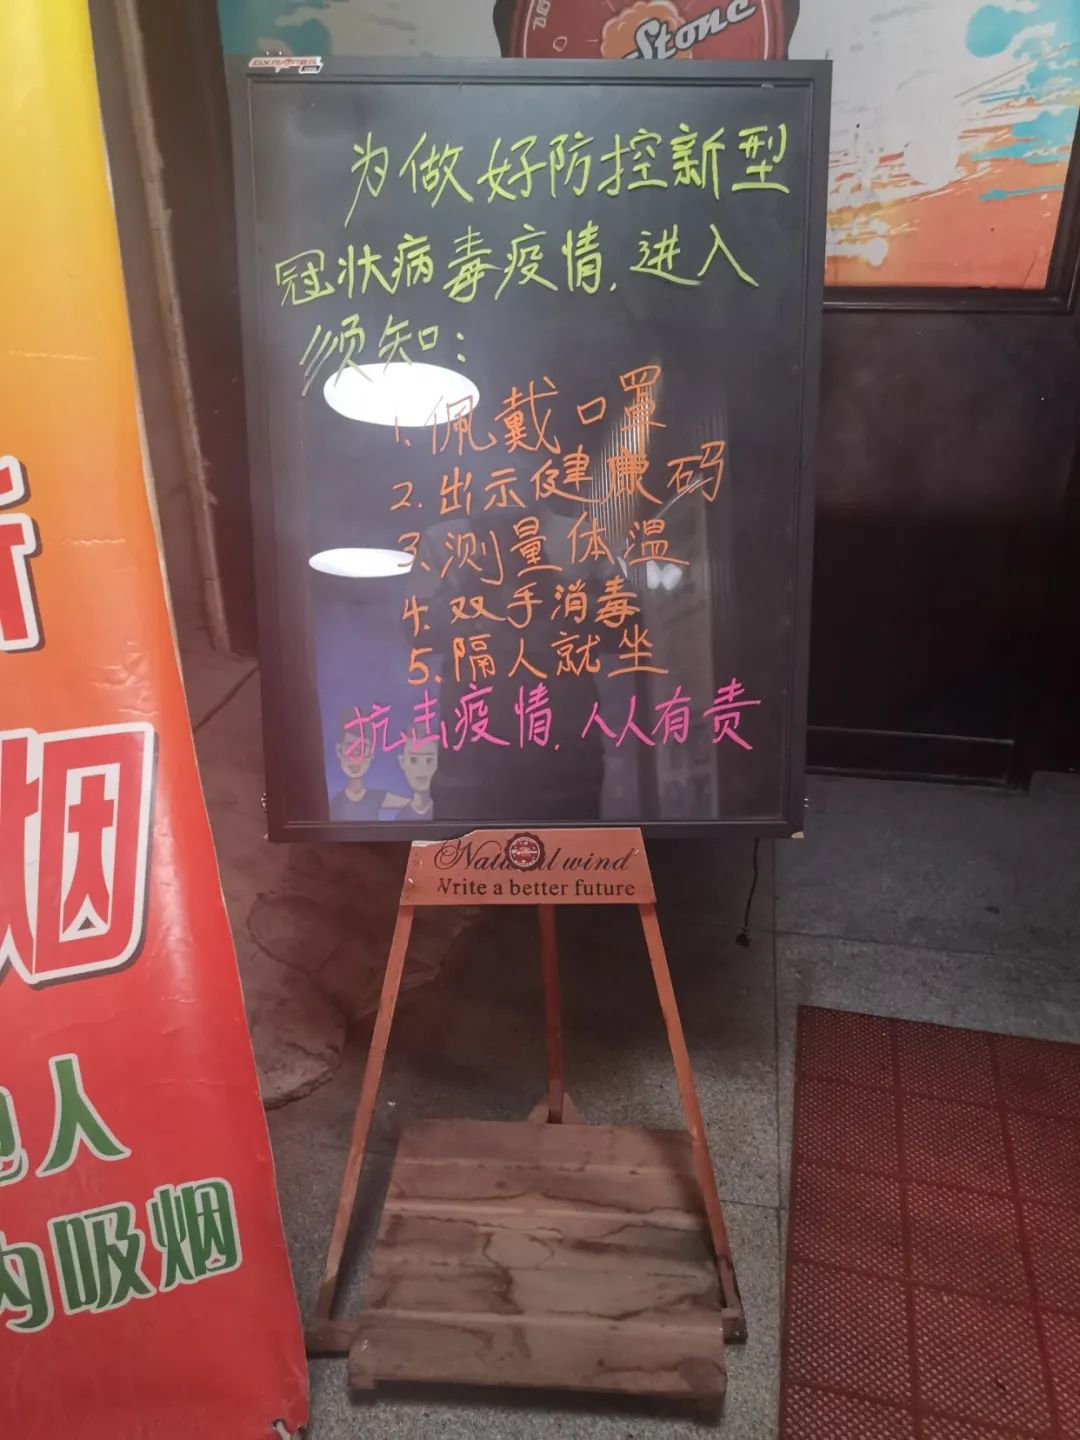 Stone
为做好防控新型
冠状病毒疫情.进入
须知:
1.佩戴口罩
2.出示健康码
3.测量体温
4.双手消毒
5.隔人就坐
抗击疫情.人人有责
Natural wind
Write a better future
烟
人
内吸烟